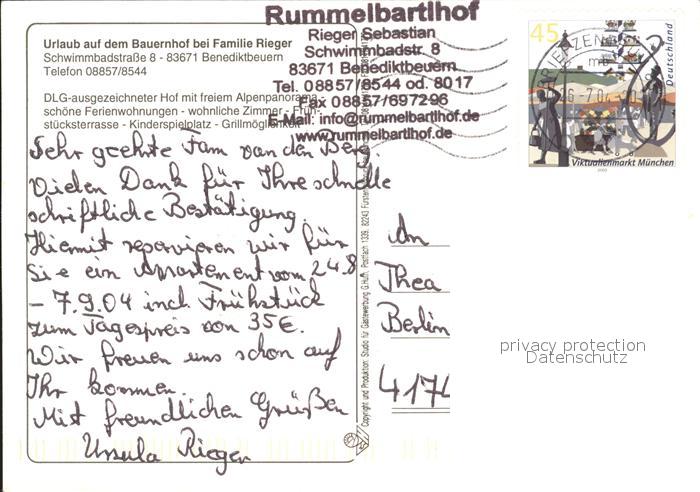 Rummelbartlhof
Rieger Sebastian
Schwimmbadstr. 8
83671 Benediktbeuern
Tel. 08857/8544 od. 8017
Fax 08857/697296
E-Mail: info@rummelbartlhof.de
www.rummelbartlhof.de
Urlaub auf dem Bauernhof bei Familie Rieger
Schwimmbadstraße 8 - 83671 Benediktbeuern
Telefon 08857/8544
DLG-ausgezeichneter Hof mit freiem Alpenpanorama -
schöne Ferienwohnungen - wohnliche Zimmer - Früh-
stücksterrasse - Kinderspielplatz - Grillmöglichkeit
Sehr geehrte Fam van den Berg.
Vielen Dank für Ihre schnelle
schriftliche Bestätigung.
Hiermit reservieren wir für
Sie ein Appartement vom 24.8
- 7.9.04 incl Frühstück
zum Tagespreis von 35€.
Wir freuen uns schon auf
Ihr kommen.
Mit freundlichen Grüßen
Ursula Rieger
Copyright und Produktion: Studio für Gästewerbung G. Huft, Postfach 1339, 82243
45
Deutschland
Viktualienmarkt München
2003
An
Thea
Berlin
4174
privacy protection
Datenschutz